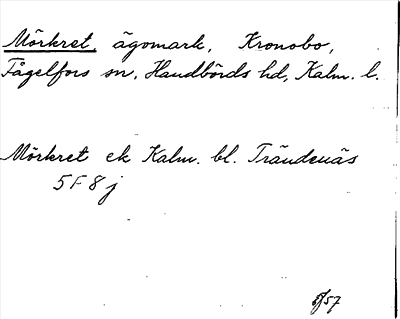 Mörkret, ägomark, Kronobo,
Fågelfors sn, Handbörds hd, Kalm. l.
Mörkret ek Kalm. bl. Trändenäs
5F8j